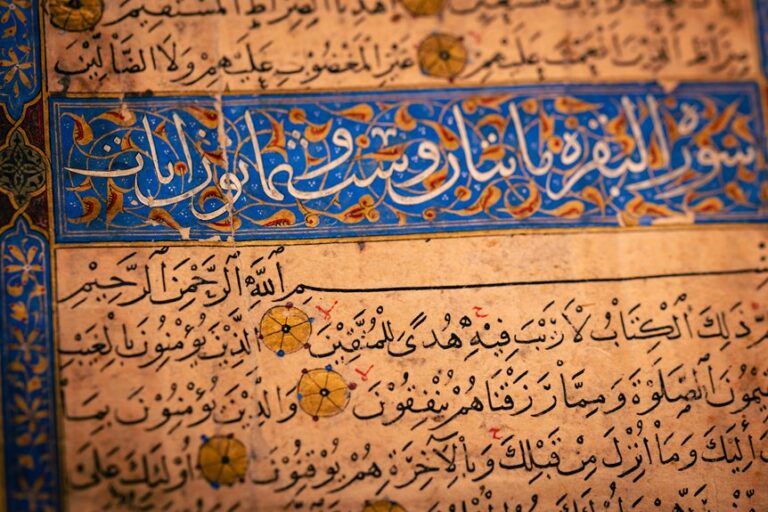 اهدنا الصراط المستقيم
صراط الذين أنعمت عليهم غير المغضوب عليهم ولا الضالين
سورة البقرة مائتان وست وثمانون ايات
بِسْمِ ٱللَّهِ ٱلرَّحْمَٰنِ ٱلرَّحِيمِ
ذَٰلِكَ ٱلْكِتَابُ لَا رَيْبَ فِيهِ هُدًى لِلْمُتَّقِينَ الَّذِينَ يُؤْمِنُونَ بِالْغَيْبِ
يُقِيمُونَ ٱلصَّلَوٰةَ وَمِمَّا رَزَقْنَاهُمْ يُنْفِقُونَ وَالَّذِينَ يُؤْمِنُونَ بِمَا
إِلَيْكَ وَمَا أُنْزِلَ مِنْ قَبْلِكَ وَبِالْآخِرَةِ هُمْ يُوقِنُونَ أُولَٰئِكَ عَلَىٰ